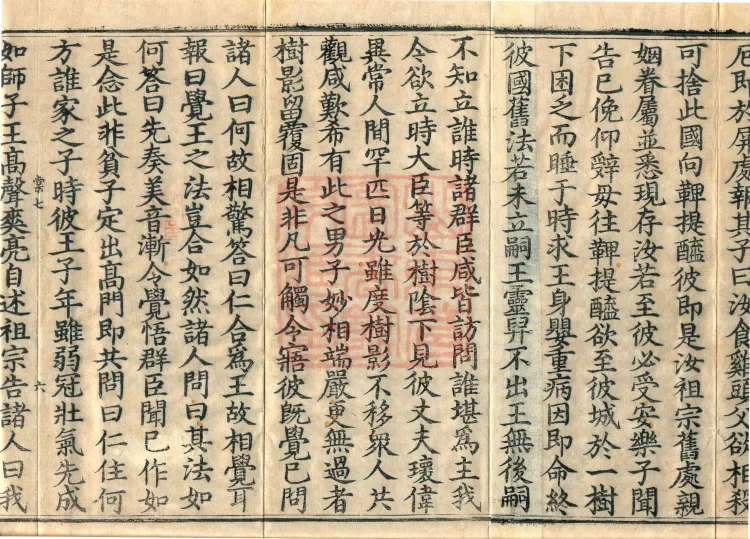 即於屏處報其子曰汝食雞頭父欲相殺
可捨此國向鞞提醯彼即是汝祖宗舊處親
姻眷屬並悉現存汝若至彼必受安樂子聞
告已俛仰辭毋往鞞提醯欲至彼城於一樹
下困乏而睡于時求王身嬰重病因即命終
彼國舊法若未立嗣王靈轝不出王無後嗣
不知立誰時諸群臣咸皆訪問誰堪為主我
今欲立時大臣等於樹陰下見彼丈夫瓌偉
異常人間罕匹日光雖度樹影不移眾人共
觀咸歎希有此之男子妙相端嚴更無過者
樹影留覆固是非凡可觸令寤彼既覺已問
諸人曰何故相驚答曰仁合為王故相覺耳
報曰覺王之法豈合如然諸人問曰其法如
何答曰先奏美音漸令覺悟群臣聞已作如
是念此非貧子定出高門即共問曰仁住何
方誰家之子時彼王子年雖弱冠壯氣先成
七 六
如師子王高聲爽亮自述祖宗告諸人曰我